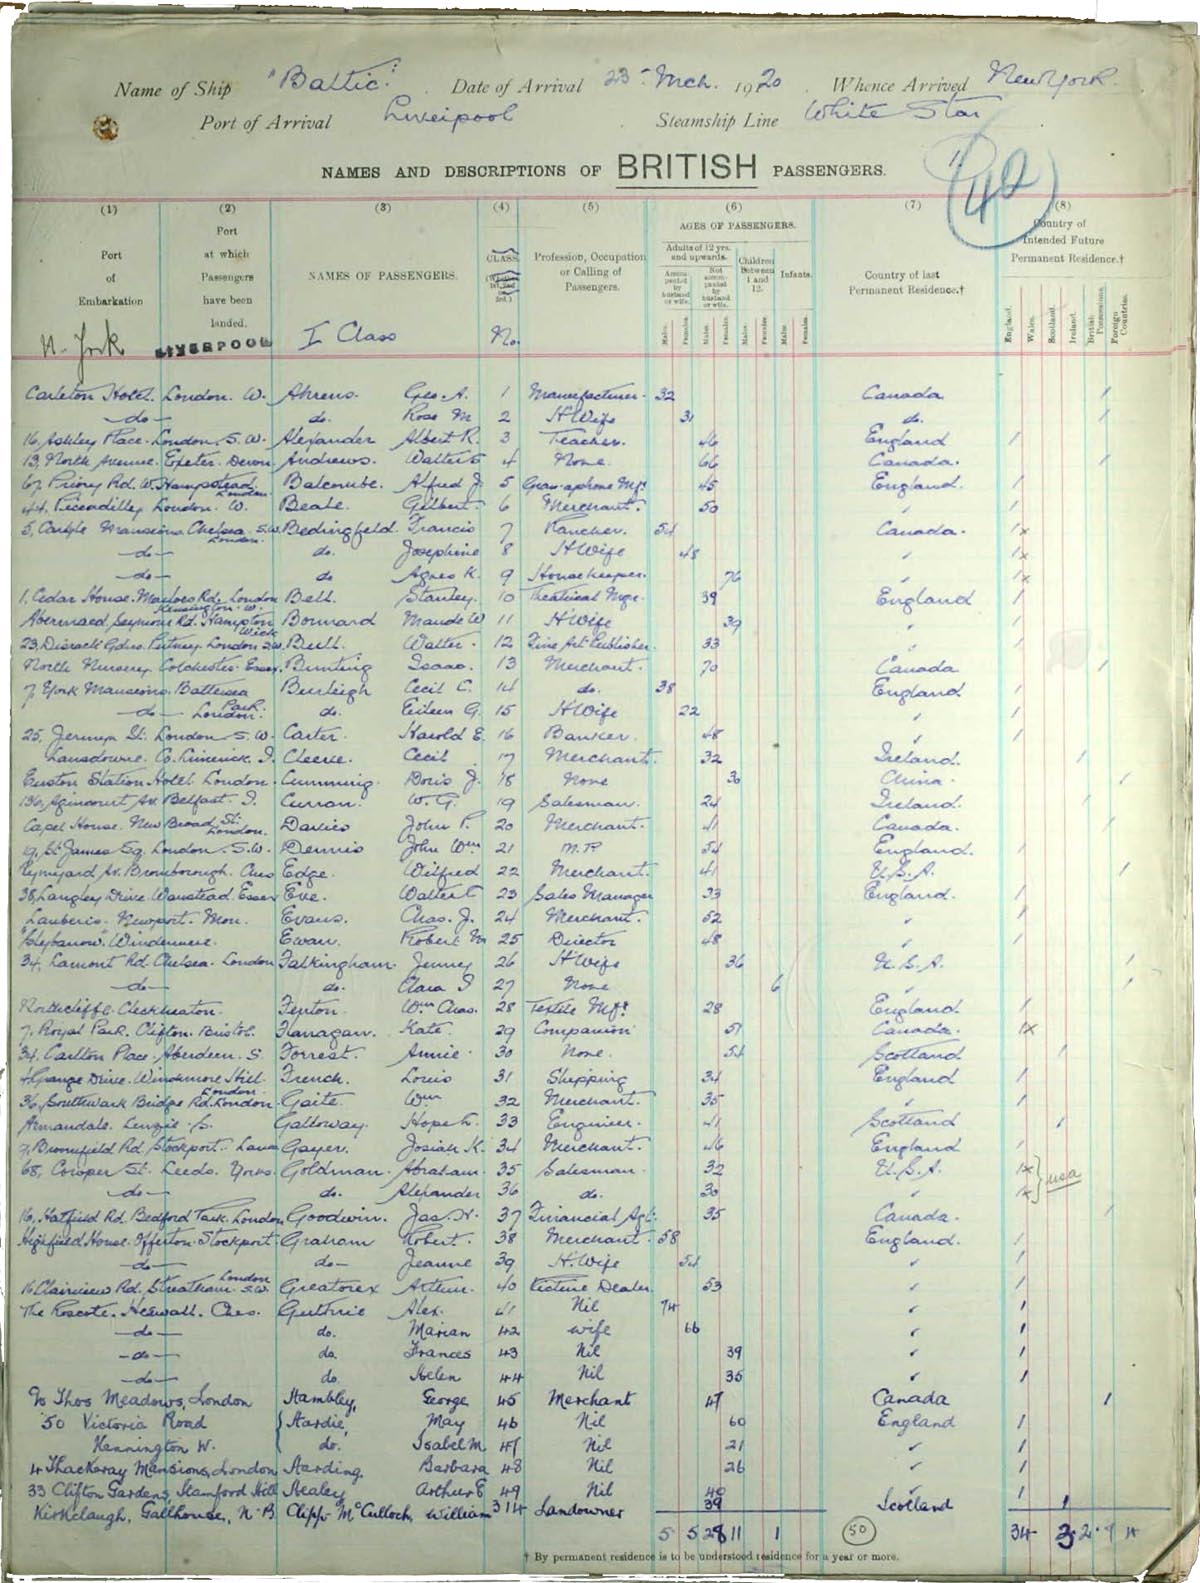 Name of Ship "Baltic". Date of Arrival 23rd Mch. 1920. Whence Arrived New York.
Port of Arrival Liverpool Steamship Line White Star
1.
42
NAMES AND DESCRIPTIONS OF BRITISH PASSENGERS.
(1) (2) (3) (4) (5) (6) (7) (8)
Port of Embarkation
Port at which Passengers have been landed.
NAMES OF PASSENGERS.
CLASS.
Profession, Occupation or Calling of Passengers.
AGES OF PASSENGERS.
Adults of 12 yrs. and upwards.
Accompanied by husband or wife.
Not accompanied by husband or wife.
Children Between 1 and 12.
Infants.
Males. Females. Males. Females. Males. Females. Males. Females.
Country of last Permanent Residence.†
Country of Intended Future Permanent Residence.†
England. Wales. Scotland. Ireland. British Possessions. Foreign Countries.
N. York LIVERPOOL I Class No.
Carleton Hotel. London. W. Ahrens. Geo. A. 1 Manufacturer. 32 Canada /
—do— do. Rose M 2 H'Wife 31 do. /
16, Ashley Place. London. S.W. Alexander Albert R. 3 Teacher. 46 England /
13, North Avenue. Exeter. Devon Andrews. Walter 4 None. 66 Canada. /
67, Priory Rd. W. Hampstead. London. Balcombe. Alfred J. 5 Gramaphone Mfr. 45 England. /
44, Piccadilly London. W. Beale. Gilbert. 6 Merchant. 50 " /
5, Carlyle Mansions Chelsea. S.W. London. Bedingfeld Francis 7 Rancher. 54 Canada. /x
—do— do. Josephine 8 H'Wife 48 " /x
—do— do Agnes K. 9 Housekeeper. 76 " /x
1, Cedar House. Marloes Rd. London Kensington. W. Bell. Stanley. 10 Theatrical Mgr. 39 England /
Seymour Rd. Hampton Wick Bonnard Maude W 11 H'Wife 39 " /
23, Disraeli Gdns. Putney. London S.W. Bull. Walter. 12 Fine Art Publisher. 33 " /
North Nursery Colchester. Essex. Bunting Isaac. 13 Merchant. 70 Canada /
7, York Mansions. Battersea Burleigh Cecil C. 14 do. 38 England /
—do— Park. London. do. Eileen G. 15 H'Wife 22 " /
25, Jermyn St. London S.W. Carter. Harold E. 16 Banker. 48 " /
Lansdowne. Co. Limerick. I. Cleeve. Cecil 17 Merchant. 32 Ireland. /
Euston Station Hotel. London. Cumming. Doris J. 18 None 30 China. /
136, Agincourt Av. Belfast. I. Curran. W. G. 19 Salesman. 24 Ireland. /
Capel House. New Broad St. London. Davies John P. 20 Merchant. 41 Canada. /
19, St. James Sq. London. S.W. Dennis John Wm 21 M.P. 54 England. /
Av. Bromborough. Ches Edge. Wilfred 22 Merchant. 41 U.S.A. /
38, Langley Drive. Wanstead. Essex Eve. Walter 23 Sales Manager 33 England. /
Newport. Mon. Evans. Chas. J. 24 Merchant. 52 " /
Windermere. Ewan. Robert M 25 Director 48 " /
34, Lamont Rd. Chelsea. London Falkingham. Jenney 26 H'Wife 36 U.S.A. /
—do— do. Clara I 27 None 6 " /
Northcliffe. Cleckheaton. Fenton. Wm Chas. 28 Textile Mfr. 28 England /
7, Royal Park. Clifton. Bristol. Flanagan. Kate. 29 Companion 51 Canada. /x
34, Carlton Place. Aberdeen. S. Forrest. Annie. 30 None. 54 Scotland /
Grange Drive. Winchmore Hill. London. French. Louis 31 Shipping 34 England /
36, Southwark Bridge Rd. London. Gaite. Wm 32 Merchant. 35 " /
Armandale. Lenzie. S. Galloway. Hope L. 33 Engineer. 41 Scotland /
7, Bromfield Rd. Stockport. Lancs Gayer. Josiah K. 34 Merchant. 46 England /
68, Cowper St. Leeds. Yorks. Goldman. Abraham. 35 Salesman. 32 U.S.A. /x
—do— do. Alexander 36 do. 30 " /x } USA
16, Hatfield Rd. Bedford Park. London Goodwin. Jas. H. 37 Financial Agt. 35 Canada. /
Highfield House. Offerton. Stockport. Graham Robert. 38 Merchant. 58 England. /
—do— do— Jeanne 39 H.Wife 54 " /
16, Clairview Rd. Streatham. London S.W. Greatorex Arthur. 40 Picture Dealer. 53 " /
The Roscote. Heswall. Ches. Guthrie Alex. 41 Nil 74 " /
—do— do. Marian 42 wife 66 " /
—do— do. Frances 43 Nil 39 " /
—do— do. Helen 44 Nil 35 " /
c/o Thos Meadows, London Hambley, George 45 Merchant 47 Canada /
50 Victoria Road { Hardie, May 46 Nil 60 England /
Kennington W. { do. Isabel M. 47 Nil 21 " /
4 Thackeray Mansions, London Harding, Barbara 48 Nil 26 " /
33 Clifton Gardens, Stamford Hill Healey, Arthur E 49 Nil 40 " /
Kirkclaugh, Gatehouse, N.B Clipp. McCulloch, William 314 Landowner 39 Scotland /
5 5 28 11 1 (50) 34 3 2 7 4
† By permanent residence is to be understood residence for a year or more.